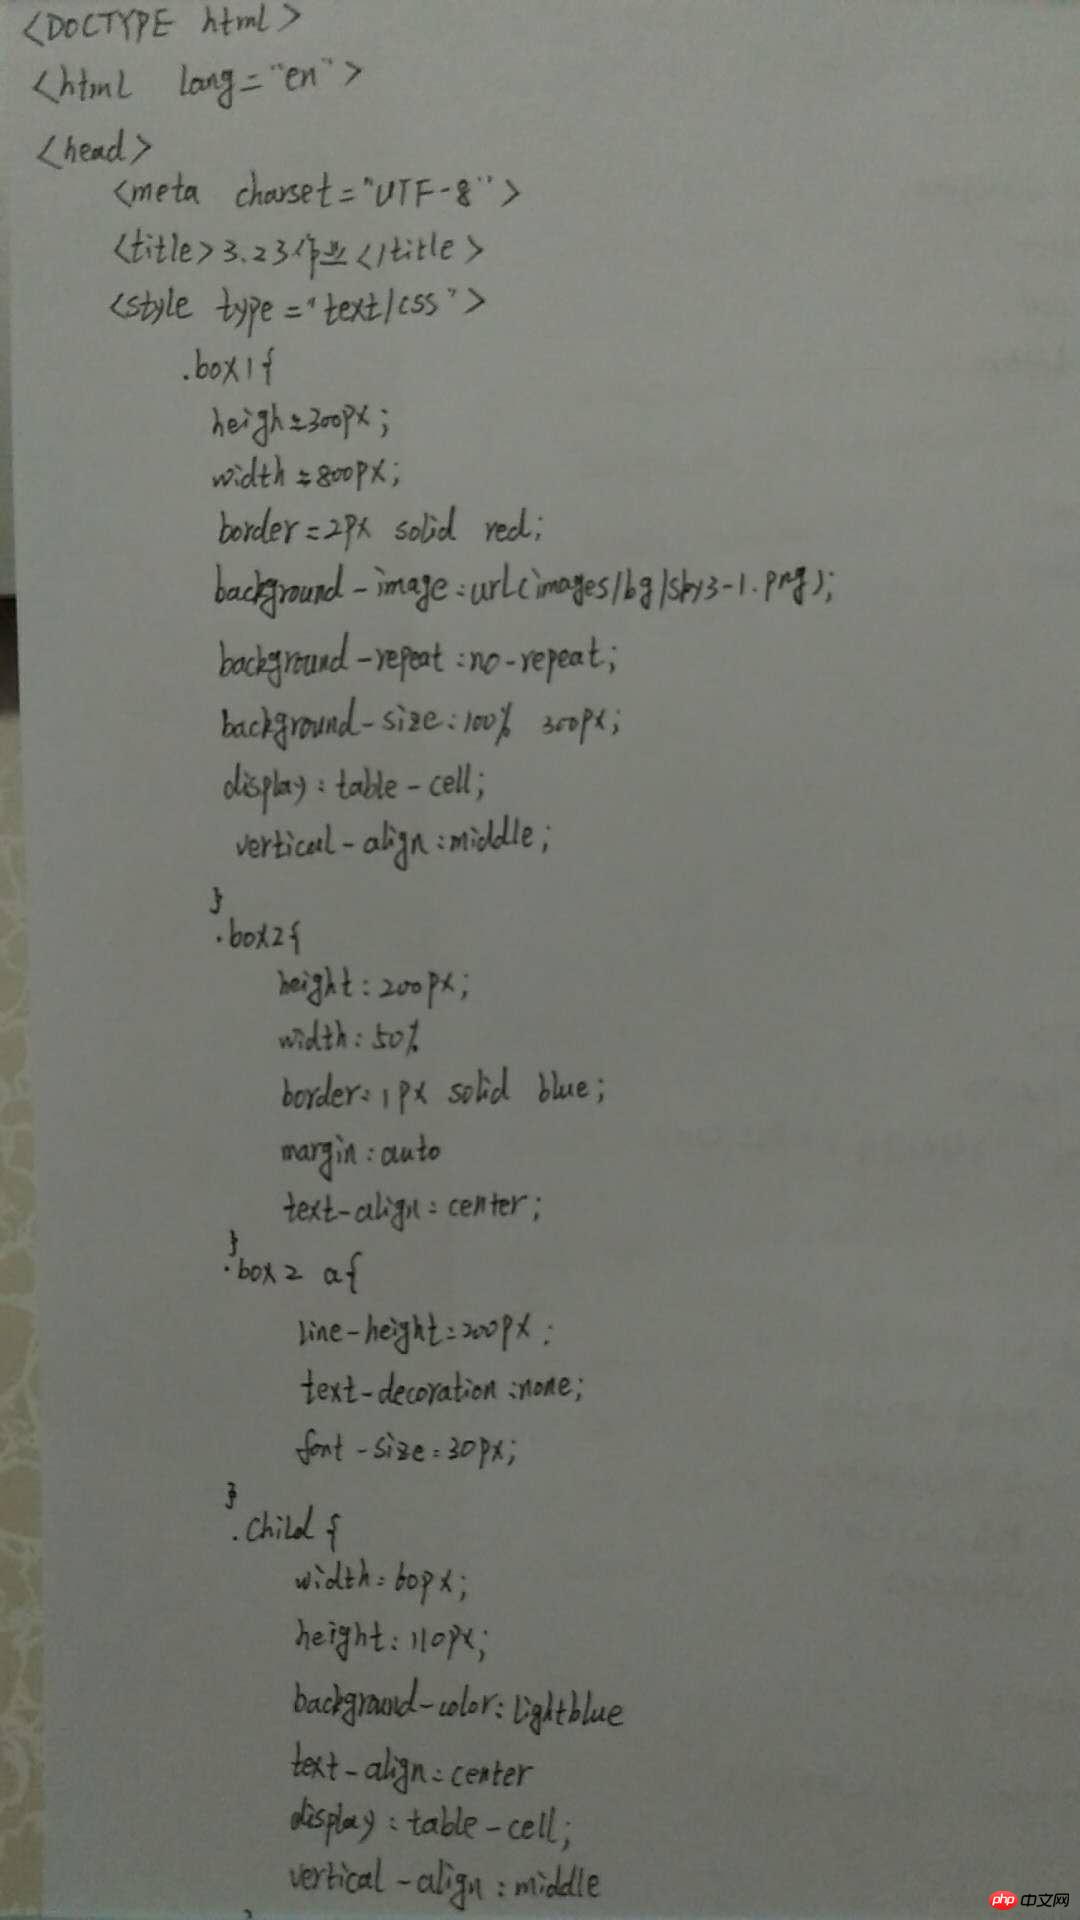 <DOCTYPE html>
<html lang="en">
<head>
<meta charset="UTF-8">
<title>3.23作业</title>
<style type="text/css">
.box1{
heigh=300px;
width=800px;
border=2px solid red;
background-image:url(images/bg/sky3-1.png);
background-repeat:no-repeat;
background-size:100% 300px;
display:table-cell;
vertical-align:middle;
}
.box2{
height:200px;
width:50%
border:1px solid blue;
margin:auto
text-align:center;
}
.box2 a{
line-height:200px;
text-decoration:none;
font-size:30px;
}
.child{
width:60px;
height:110px;
background-color:lightblue
text-align:center
display:table-cell;
vertical-align:middle
}
php中文网